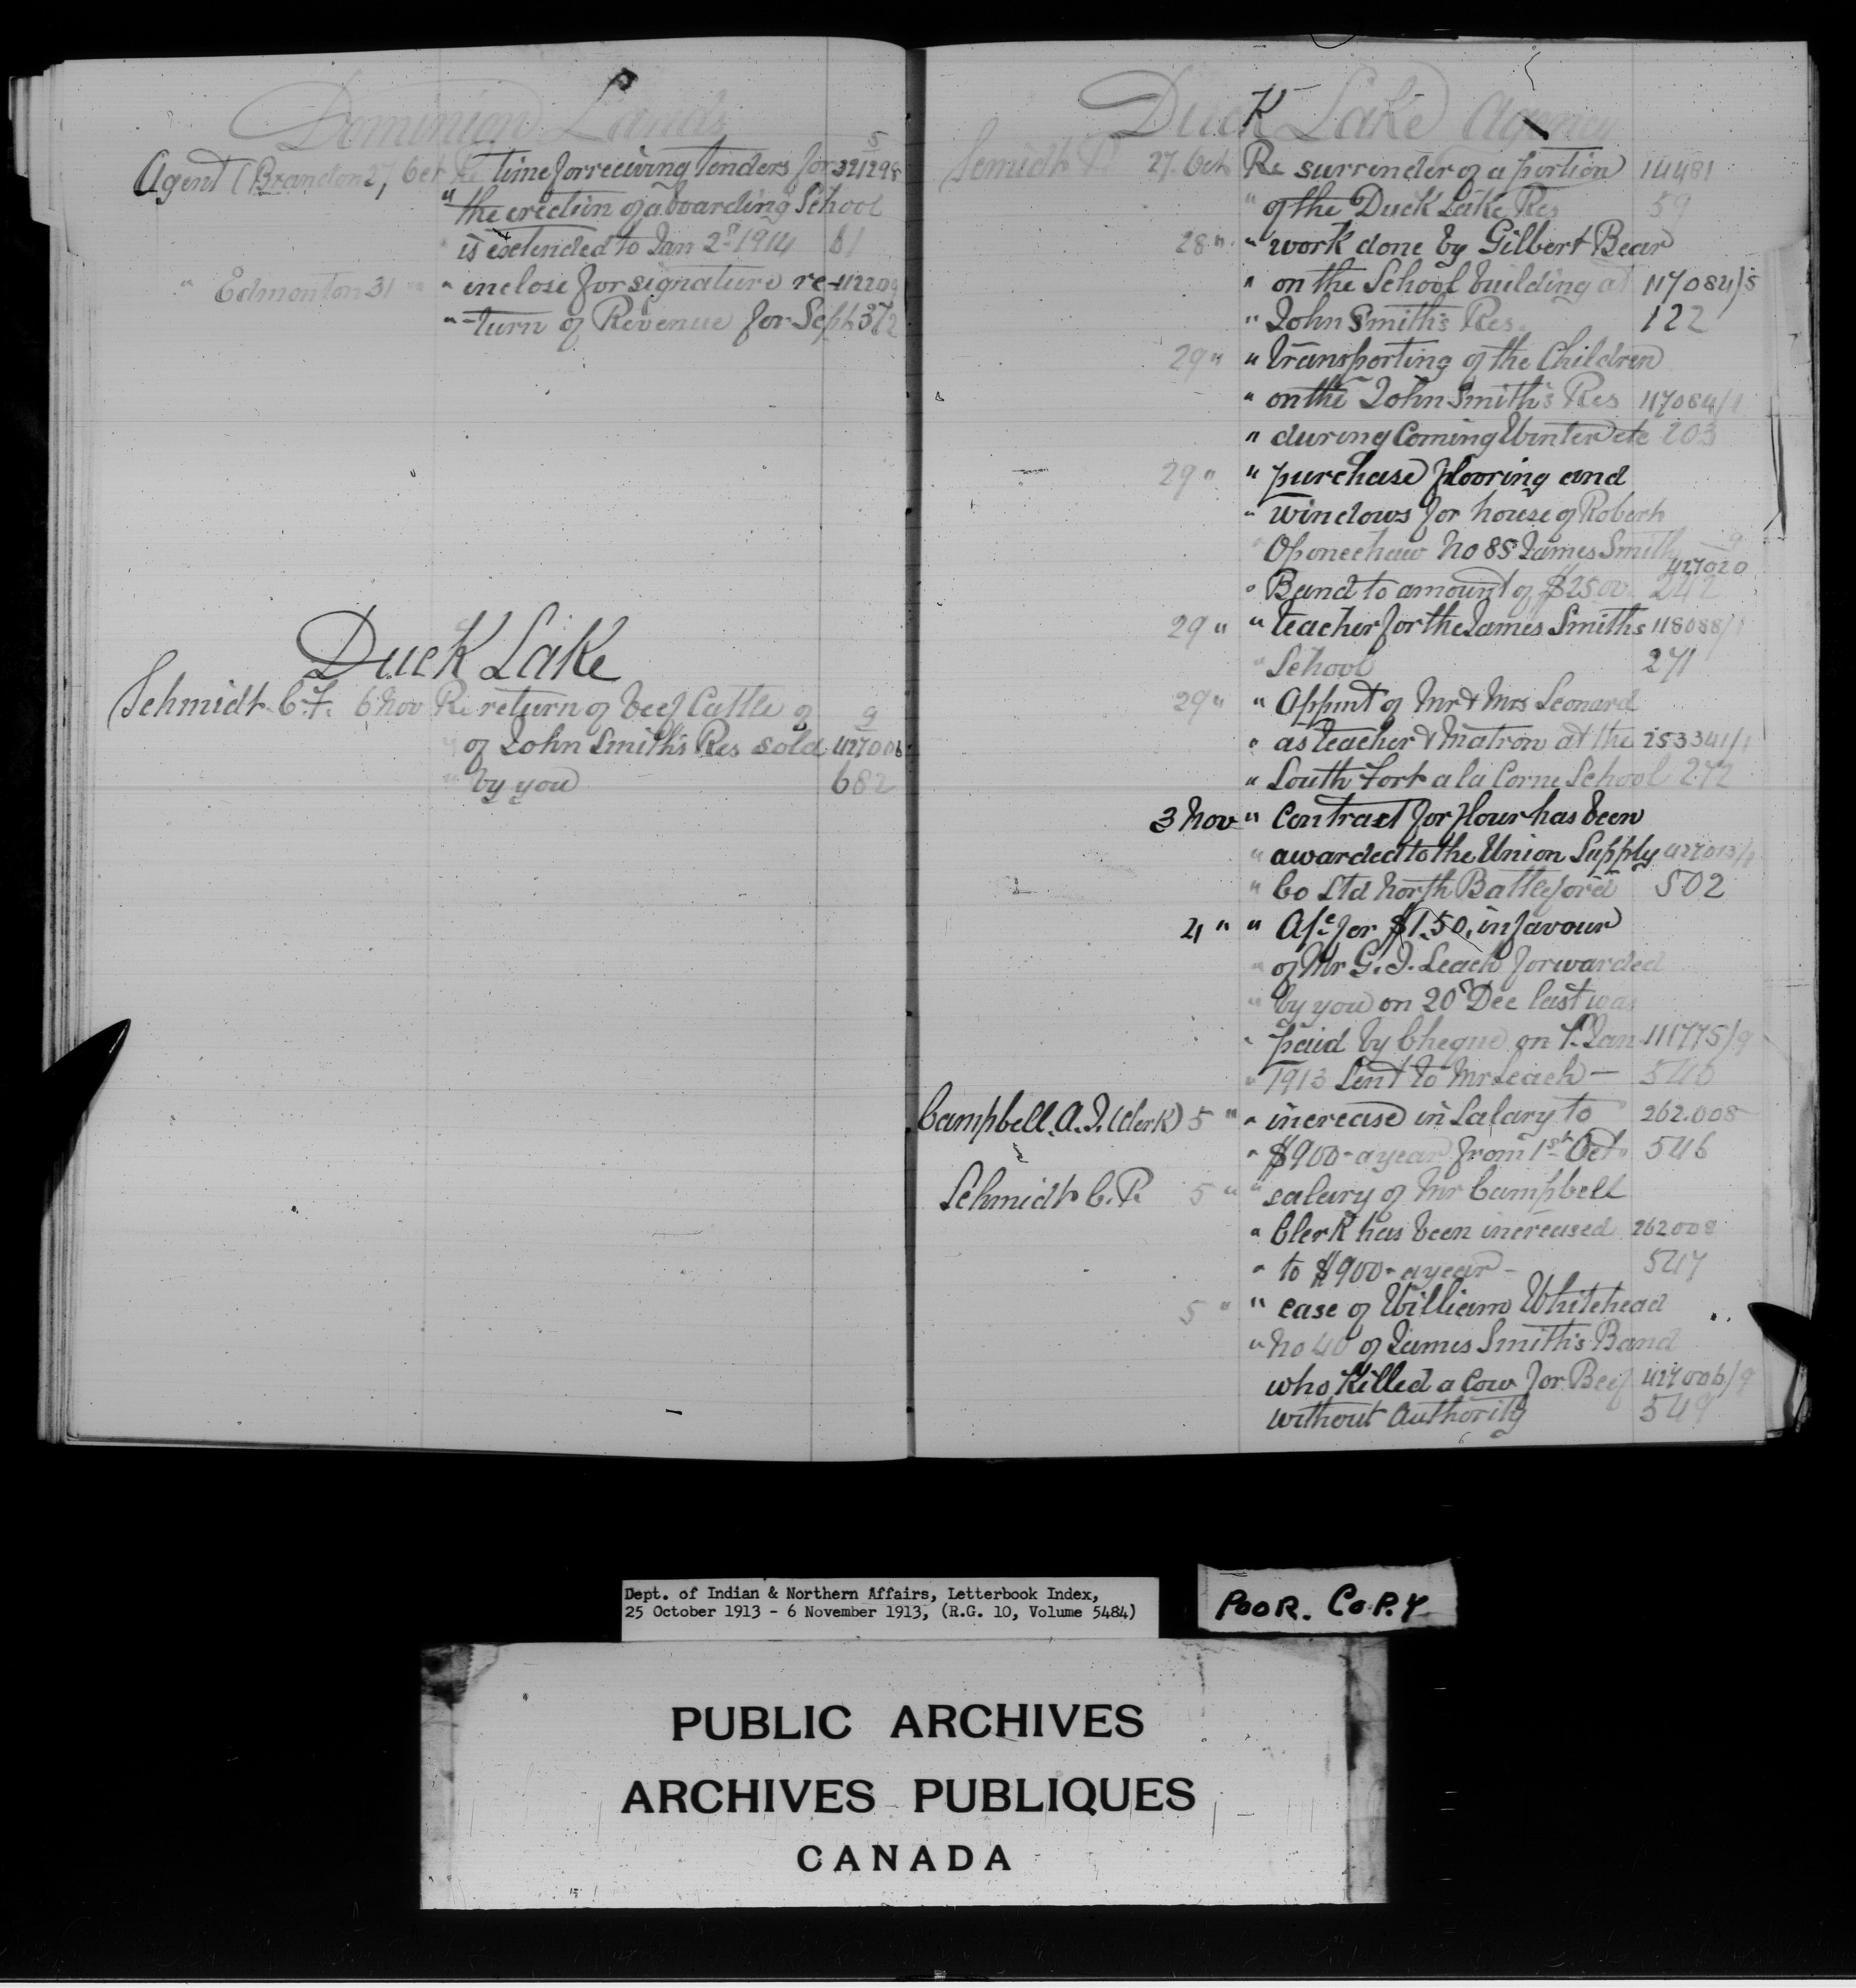 Dominion Lands
5
Agent (Brandon 27 Oct Re time for receiving tenders for 321298
" the erection of a boarding School
" is extended to Jan 2nd 1914 61
" Edmonton 31 " " inclose for signature re- 112209
" -turn of Revenue for Sept 372
Duck Lake
Schmidt C.F. 6 Nov Re return of beef Cattle of 9
" of John Smith's Res sold 427006
" by you 682
Duck Lake Agency
27 Oct Re surrender of a portion 14481
" of the Duck Lake Res 59
28 " " work done by Gilbert Bear
" on the School building at 117084/5
" John Smith's Res. 122
29 " " transporting of the Children
" on the John Smith's Res 117084/1
" during Coming Winter etc 203
29 " " purchase flooring and
" windows for house of Robert
" No 85 James Smith 9
427020
" Band to amount of $25.00 242
29 " " teacher for the James Smiths 118088/1
" School 271
29 " " Appmt of Mr & Mrs Leonard
" as teacher & Matron at the 253341/1
" South Fort a la Corne School 272
3 Nov " Contract for flour has been
" awarded to the Union Supply 427013/1
" Co Ltd North Battleford 502
4 " " A/c for $1.50, in favour
" of Mr G.J. Leach forwarded
" by you on 20th Dec last was
" paid by Cheque on 7. Jan 111775/9
" 1913 Sent to Mr Leach —
Campbell A.J. (Clerk) 5 " " increase in Salary to 262.008
" $900- a year from 1st Oct. 546
Schmidt C.P. 5 " " salary of Mr Campbell
" Clerk has been increased 262008
" to $900- a year - 547
5 " " case of William Whitehead
" No 40 of James Smith's Band
who Killed a Cow for Beef 427006/9
without Authority 549
Dept. of Indian & Northern Affairs, Letterbook Index,
25 October 1913 - 6 November 1913, (R.G. 10, Volume 5484)
POOR. COPY
PUBLIC ARCHIVES
ARCHIVES PUBLIQUES
CANADA